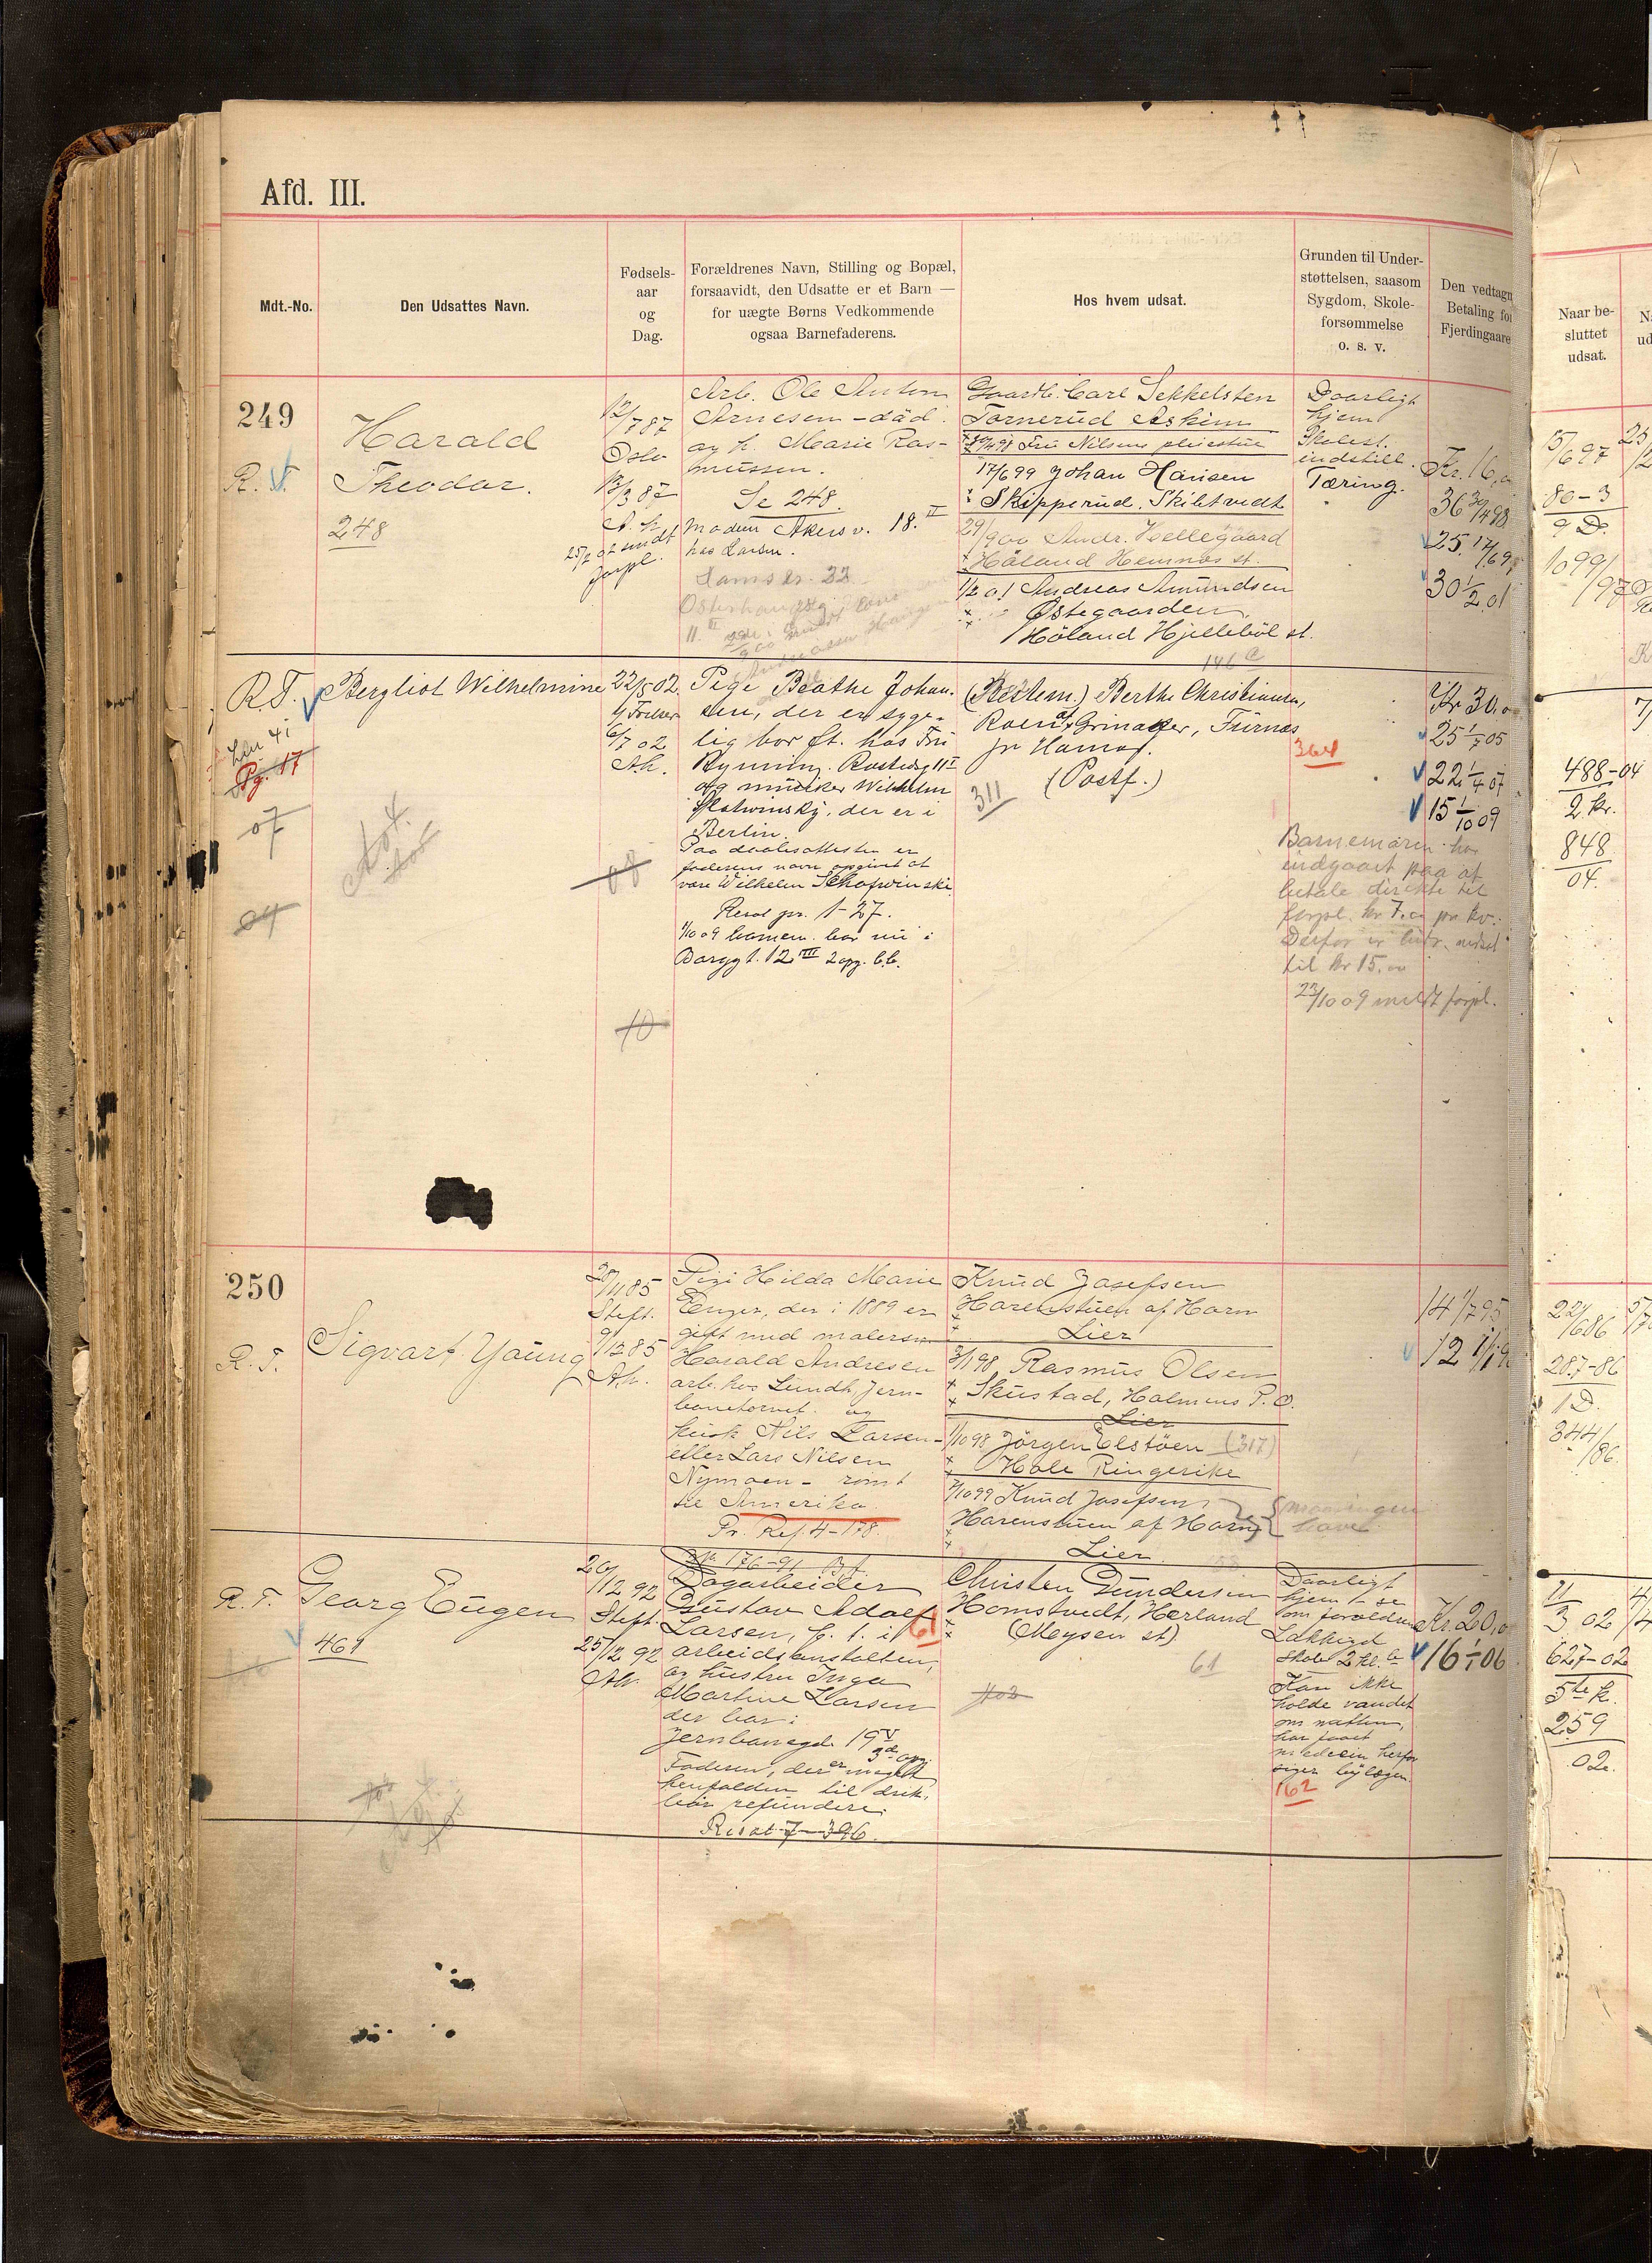 Afd. III.
Mdt.-No.
Den Udsattes Navn.
Fødsels-
aar
og
Dag.
Forældrenes Navn, Stilling og Bopæl,
forsaavidt, den Udsatte er et Barn —
for uægte Børns Vedkommende
ogsaa Barnefaderens.
Hos hvem udsat.
Grunden til Under-
støttelsen, saasom
Sygdom, Skole-
forsømmelse
o. s. v.
Den vedtagn
Betaling for
Fjerdingaare
Naar be-
sluttet
udsat.
249
R. T.
Harald
Theodor.
248
12/7 87
Oslo
13/3 87
Arb. Ole Anton
Arnesen - död.
og h. Marie Ras-
mussen.
Se 248.
Moden Akersv. 18. II
hos Larsen.
Gaardb. Carl Sekkelsten
Tornerud Askim
Fru Nilsens pleiestue
17/6 99 Johan Hansen
Skipperud. Skibtvedt
29/9 00 Andr. Hellegaard
Høland Hemnæs st.
1/2 01 Andreas Amundsen
Østegaarden
Høland Hjellebøl st.
Daarligt
hjem
Skolest.
indstill.
Tæring.
Kr. 16,
36 30/4 98
25. 17/6 9
30 1/2 01
15/6 97
80-3
9 D.
1099/97
R.T.
Pg. 17
07
04
Bergliot Wilhelmine
22/5 02
Trefser
6/7 02
Ak.
08
10
Pige Beathe Johan-
sen, der er syge-
lig bor ft. hos Fru
Rynning. Rostedsg 11 I
og musiker Wilhelm
Slatwinsky, der er i
Berlin.
Paa daabsattesten er
faderens navn opgivet at
være Wilhelm Schafwinski
Resol pr. 1-27.
1/10 09 barnem. bor nu i
Borggt. 12 III 2 opg. b.b.
146 C
(Bestem.) Berthe Christiansen,
Roen af Grinaker, Furnes
pr Hamar.
(Postf.)
311
364
Kr 30,0
25 1/7 05
22 1/4 07
15 1/10 09
Barnemoren har
indgaaet paa at
betale direkte til
forpl. kr 7.00 pr kv.
Derfor er bidr. nedsat
til kr 15.00
23/10 09 meldt forpl.
488-04
2 kr.
848
04.
250
R. T.
Sigvart Young
20/11 85
Steft.
9/12 85
Ak.
Pige Hilda Marie
Enger, der i 1889 er
gift med malersv
Harald Andresen
arb. hos Lundh, Jern-
banetorvet. og
kusk Nils Larsen
eller Lars Nilsen
Nymoen - rømt
til Amerika.
Pr. Ref 4-178.
Knud Josefsen
Harenstuen af Horn
Lier
3/1 98, Rasmus Olsen
Skustad, Holmens P.O.
Lier
1/10 98 Jörgen Elstöen (317)
Hole Ringerike
7/10 99 Knud Josefsen,
Harenstuen af Horn
Lier
14 1/7 95
12 1/1 9
22/6 86
287-86
1 D.
344/86.
R. T.
Georg Eugen
461
20/12 92
Steft.
25/12 92
Ak.
176-91
Dagarbeider
Gustav Adolf
Larsen, f. t. i
arbeidsanstalten,
og hustru Inga
Martine Larsen
der bor:
Jernbanegd. 19 V
3de opg.
Faderen, der er meget
henfalden til drik,
bør refundere.
Resol 7-396.
61
Christen Gundersen
Homstvedt, Herland
(Mysen st)
61
Daarligt
hjem - se
om forældrene
Lakkegd
skole 2 kl. b
Kan ikke
holde vandet
om natten,
har faaet
medecin herfor
siger bylægen.
162
Kr. 20,0
16 1/1 06
11/3 02
627-02
5te k.
259
02.